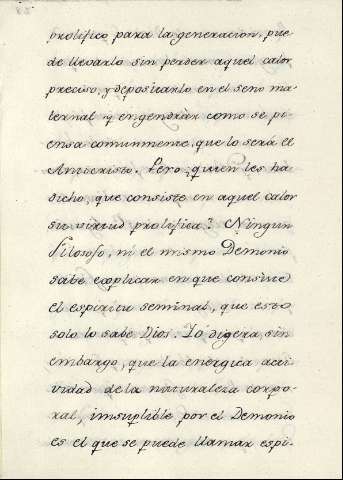 prolifico para la generacion, pue-
de llevarlo sin perder aquel calor
preciso, y depositarlo en el seno ma-
ternal y engendrar como se pi-
ensa comunmente, que lo será el
Antecristo. Pero ¿quien les ha
dicho, que consiste en aquel calor
su virtud prolifica? Ningun
Filosofo, ni el mismo Demonio
sabe explicar en que consiste
el espiritu seminal, que esto
solo lo sabe Dios. Yo digera, sin
embargo, que la energica acti-
vidad de la naturaleza corpo-
ral, insuplible por el Demonio
es el que se puede llamar espi-